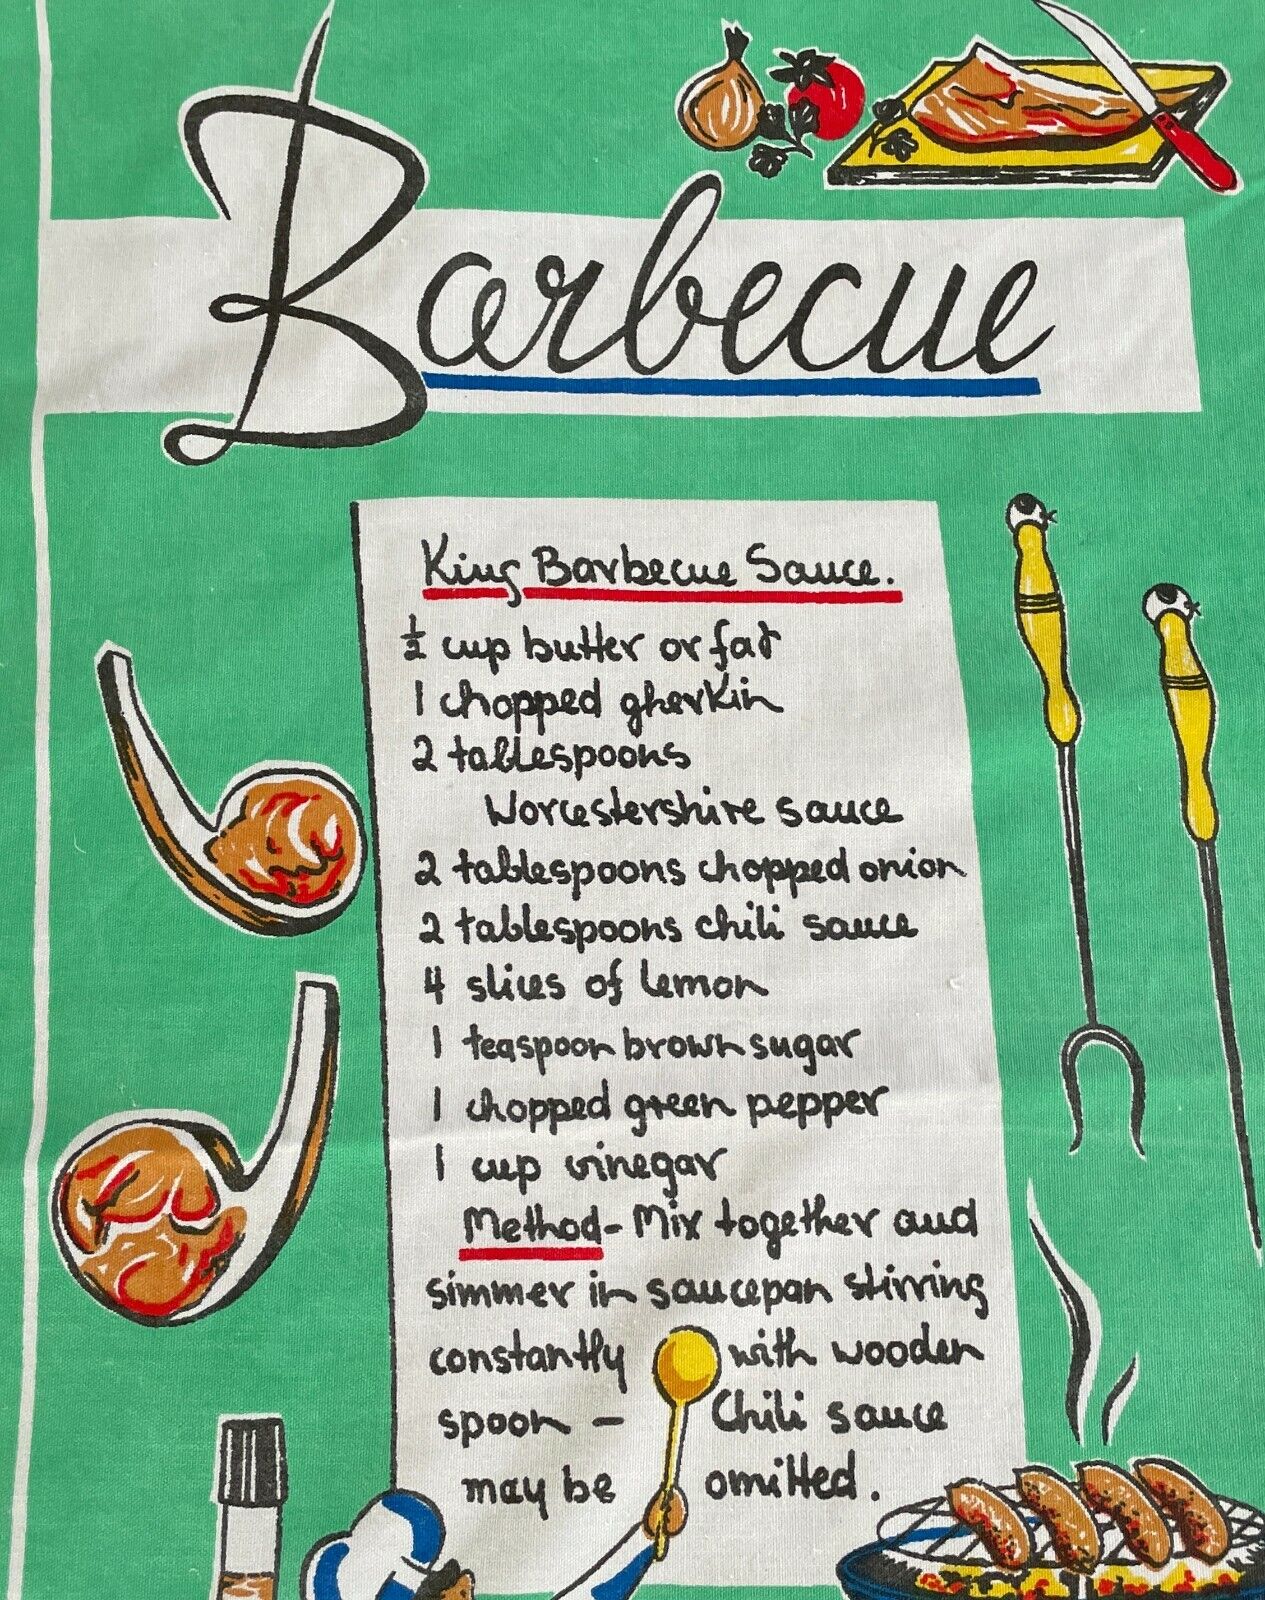 Barbecue
King Barbecue Sauce.
½ cup butter or fat
1 chopped gherkin
2 tablespoons
Worcestershire sauce
2 tablespoons chopped onion
2 tablespoons chili sauce
4 slices of lemon
1 teaspoon brown sugar
1 chopped green pepper
1 cup vinegar
Method - Mix together and
simmer in saucepan stirring
constantly with wooden
spoon - Chili sauce
may be omitted.